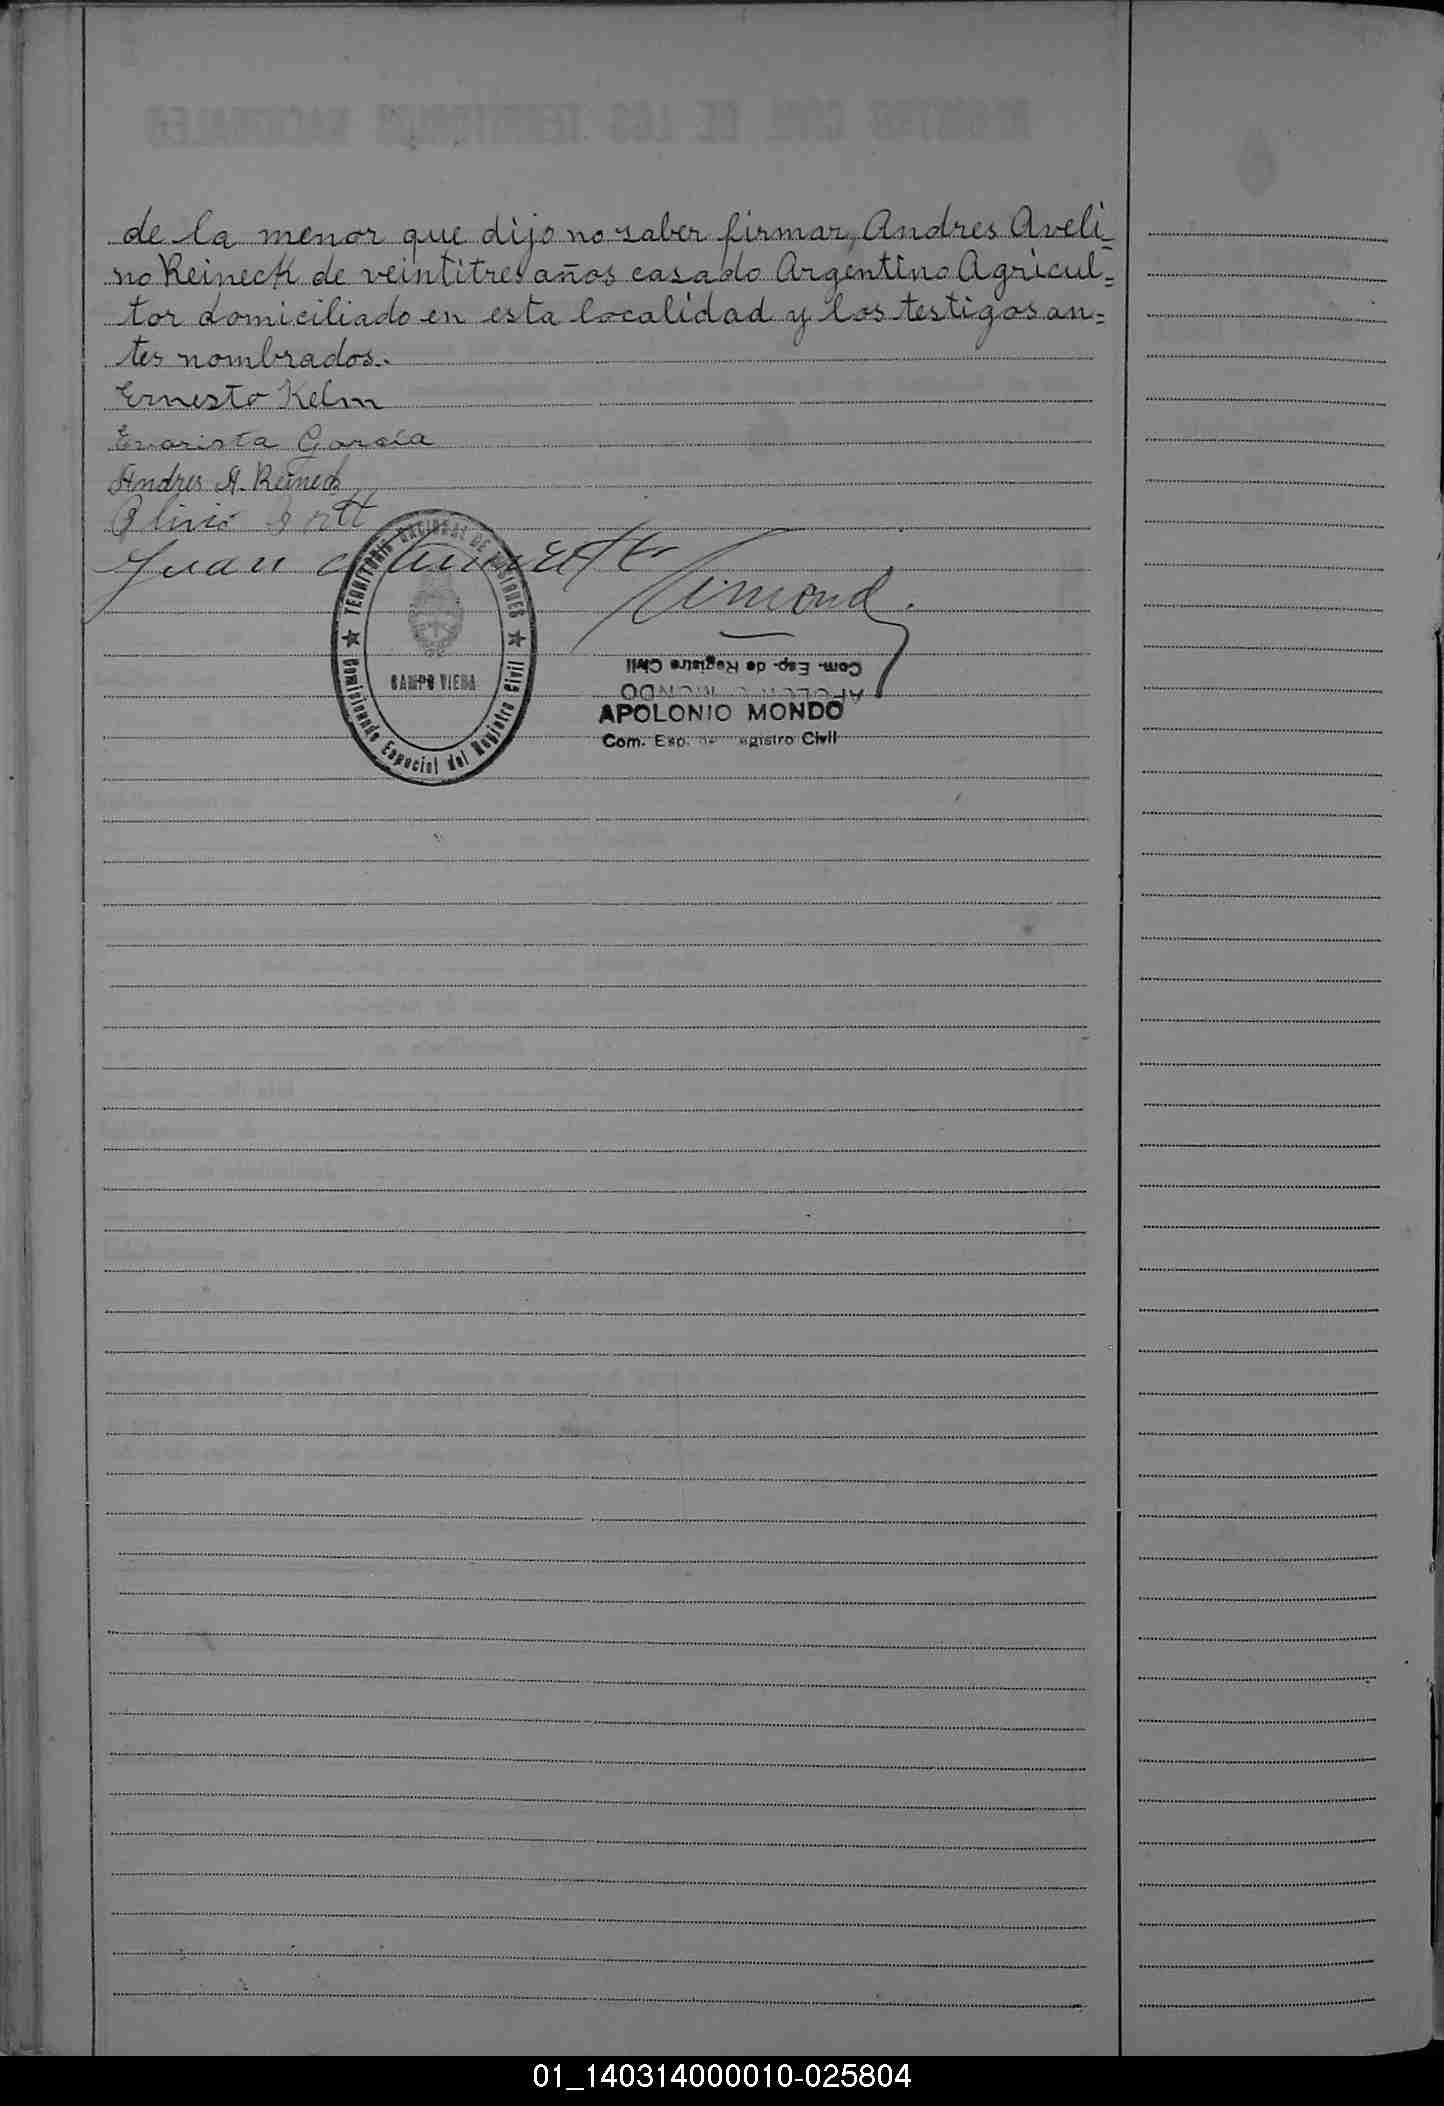 de la menor que dijo no saber firmar, Andres Aveli-
no Reineck de veintitres años casado Argentino Agricul=
tor domiciliado en esta localidad y los testigos an=
tes nombrados.-
Ernesto Kelm
Evarista García
Andres A. Reineck
Juan
TERRITORIO NACIONAL DE MISIONES
CAMPO VIERA
Comisionado Especial del Registro Civil
Com. Esp. de Registro Civil
APOLONIO MONDO
APOLONIO MONDO
Com. Esp. de Registro Civil
01_140314000010-025804